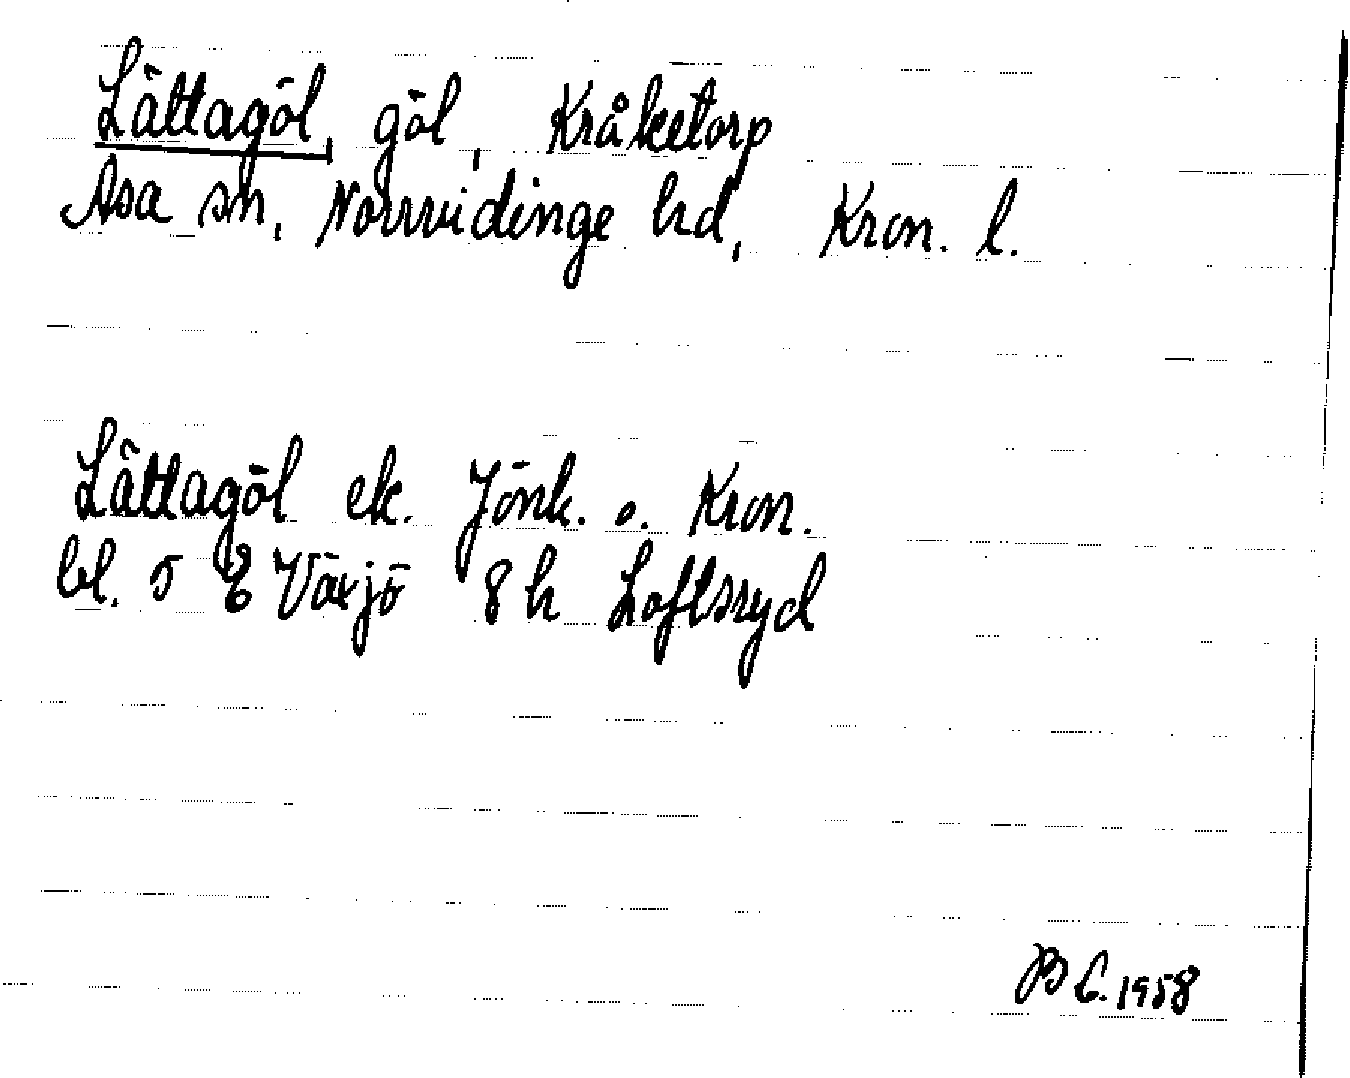 Lättagöl, göl, Kråketorp
Asa sn, Norrvidinge hd, Kron. l.
Lättagöl ek. Jönk. o. Kron.
bl. 5 E Växjö 8 h Loftsryd
B C. 1958